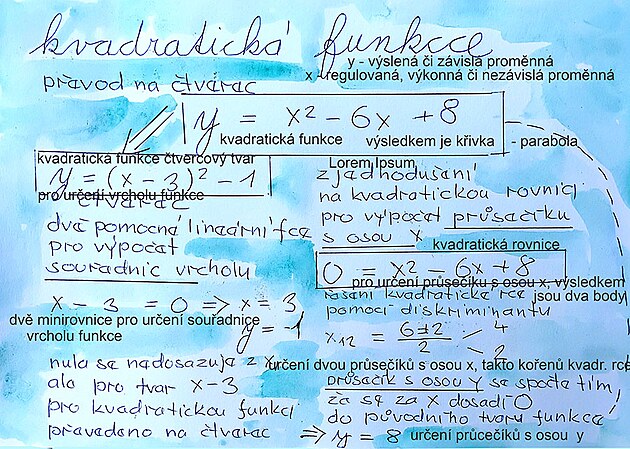 kvadratická funkce
y - výslená či závislá proměnná
x - regulovaná, výkonná či nezávislá proměnná
převod na čtverec
y = x² - 6x + 8
kvadratická funkce
výsledkem je křivka - parabola
kvadratická funkce čtvercový tvar
y = (x - 3)² - 1
pro určení vrcholu funkce
čtverec
dvě pomocné lineární fce
pro výpočet
souřadnic vrcholu
x - 3 = 0 => x = 3
y = -1
dvě minirovnice pro určení souřadnice
vrcholu funkce
nula se nedosazuje z x
ale pro tvar x - 3
pro kvadratickou funkci
převedeno na čtverec
Lorem Ipsum
zjednodušení
na kvadratickou rovnici
pro výpočet průsečíku
s osou x
kvadratická rovnice
0 = x² - 6x + 8
pro určení průsečíků s osou x, výsledkem
jsou dva body
řešení kvadratické rce
pomocí diskriminantu
x₁₂ = 6±2 / 2 4 2
určení dvou průsečíků s osou x, takto kořenů kvadr. rce
průsečík s osou y se spočte tím,
že se za x dosadí 0
do původního tvaru funkce
=> y = 8
určení průcečíků s osou y